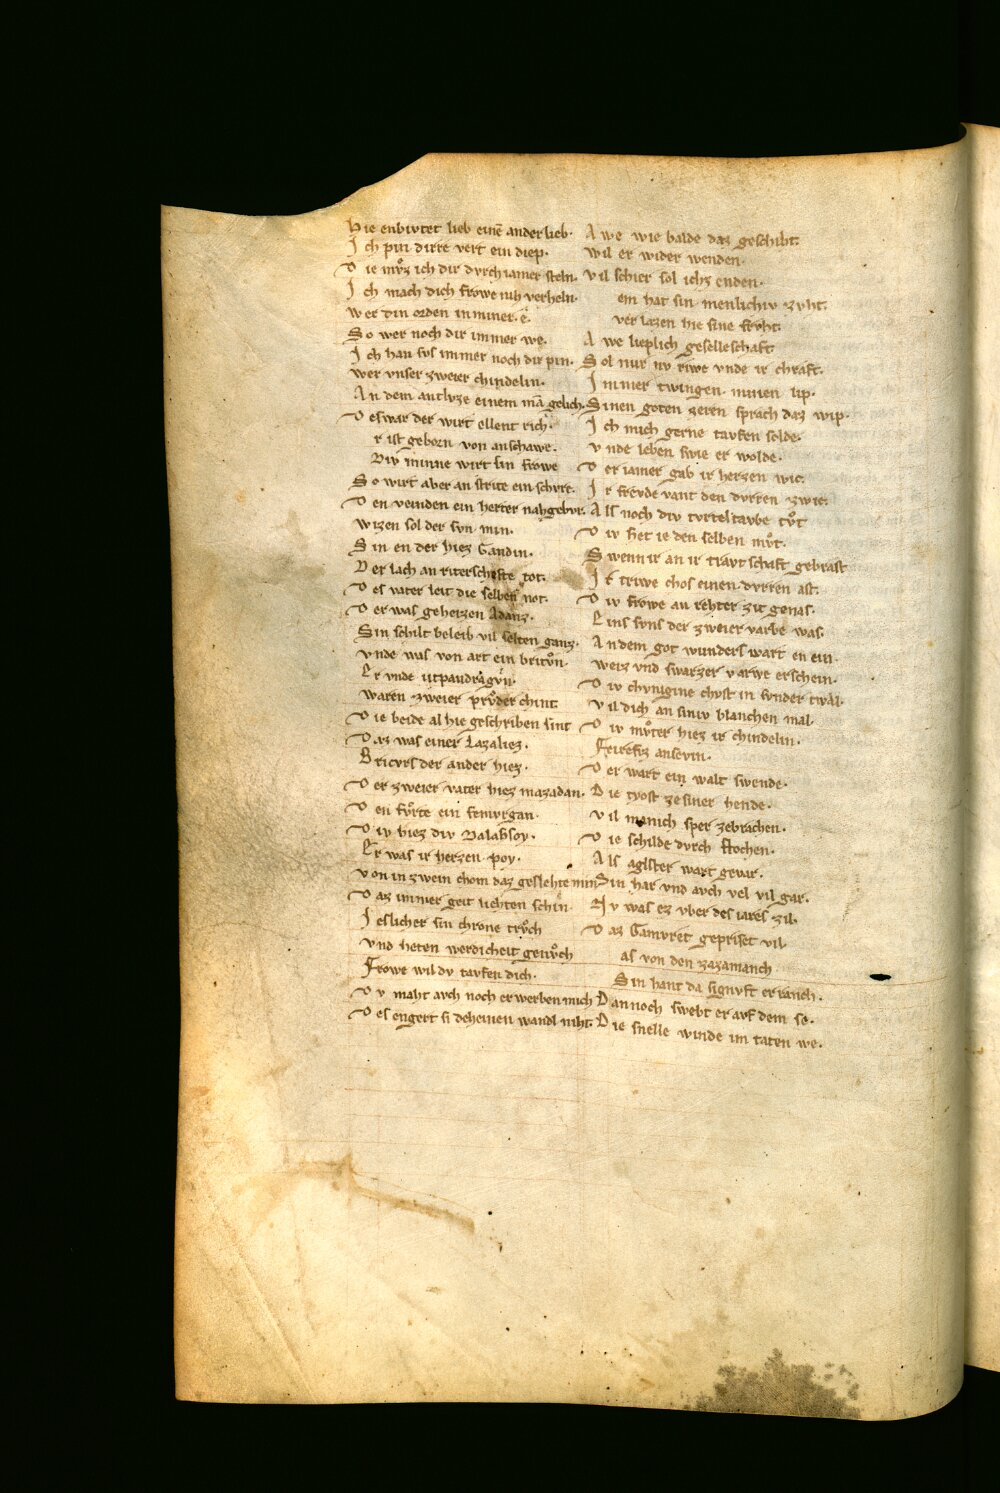 Hie enbivtet lieb einē ander lieb·
I ch pin dirre vert ein diep·
D ie mvͦz ich dir dvrch iamer steln·
I ch mach dich frowe niht verheln·
wer din orden in miner·e͛·
S o wer noch dir immer we·
I ch han svs immer noch dir pin·
wer vnser zweier chindelin·
A n dem antlvze einem mā gelich·
D eswar der wirt ellent rich·
r ist geborn von anschawe·
Div minne wirt sin frowe
S o wirt aber an strite ein schvre·
D en veinden ein herter nahgebvr·
wizen sol der svn min·
S in en der hiez Gandin·
D er lach an riterschefte tot·
D es vater leit die selben not·
D er was geheizen Adanz·
S in schilt beleib vil selten ganz·
vnde was von art ein britvͦn·
E r vnde vtpandragvͦn·
waren zweier prvͦder chint
D ie beide al hie geschriben sint
D az was einer Lazaliez·
B ricvrs der ander hiez·
D er zweier vater hiez mazadan·
D en fvͦrte ein femvrgan·
D iv hiez div Dalabsoy·
E r was ir herzen poy·
von in zwein chom daz geslehte min
D az immer geit liehten schin·
I eslicher sin chrone trvͦch
vnd heten werdicheit genvͦch
Frowe wil dv tavfen dich·
D v maht avch noch erwerben mich
D es engert si deheinen wandl niht·
A we wie balde daz geschiht·
wil er wider wenden·
vil schier sol ichz enden·
em hat sin menlichiv zvht·
ver lazen hie sine frvht·
A we lieplich geselleschaft
S ol mir nv riwe vnde ir chraft·
I mmer twingen minen lip·
S inen goten zeren sprach daz wip·
I ch mich gerne tavfen solde·
vnde leben swie er wolde·
D er iamer gab ir herzen wic·
I r frevde vant den dvrren zwic·
A ls noch div tvrteltavbe tvͦt
D iv het ie den selben mvͦt·
S wenn ir an ir travtschaft gebrast
I r triwe chos einen dvrren ast·
D iv frowe an rehter zit genas·
E ins svns der zweier varbe was·
A n dem got wunders wart en ein·
weiz vnd swarzer varwe erschein·
D iv chvnigine chvst in svnder twal·
vil dich an siniv blanchen mal·
D iv mvͦter hiez ir chindelin·
Feirefiz ansevin·
D er wart ein walt swende·
D ie tyost ze siner hende·
vil manich sper zebrachen·
D ie schilde dvrch stochen·
A ls aglster wart gevar·
Sin har vnd avch vel vil gar·
N v was ez vber des iares zil·
D az Gamvret gepriset vil
as von den zazamanch
Sin hant da signvft erranch·
D annoch swebt er avf dem se·
D ie snelle winde im taten we·